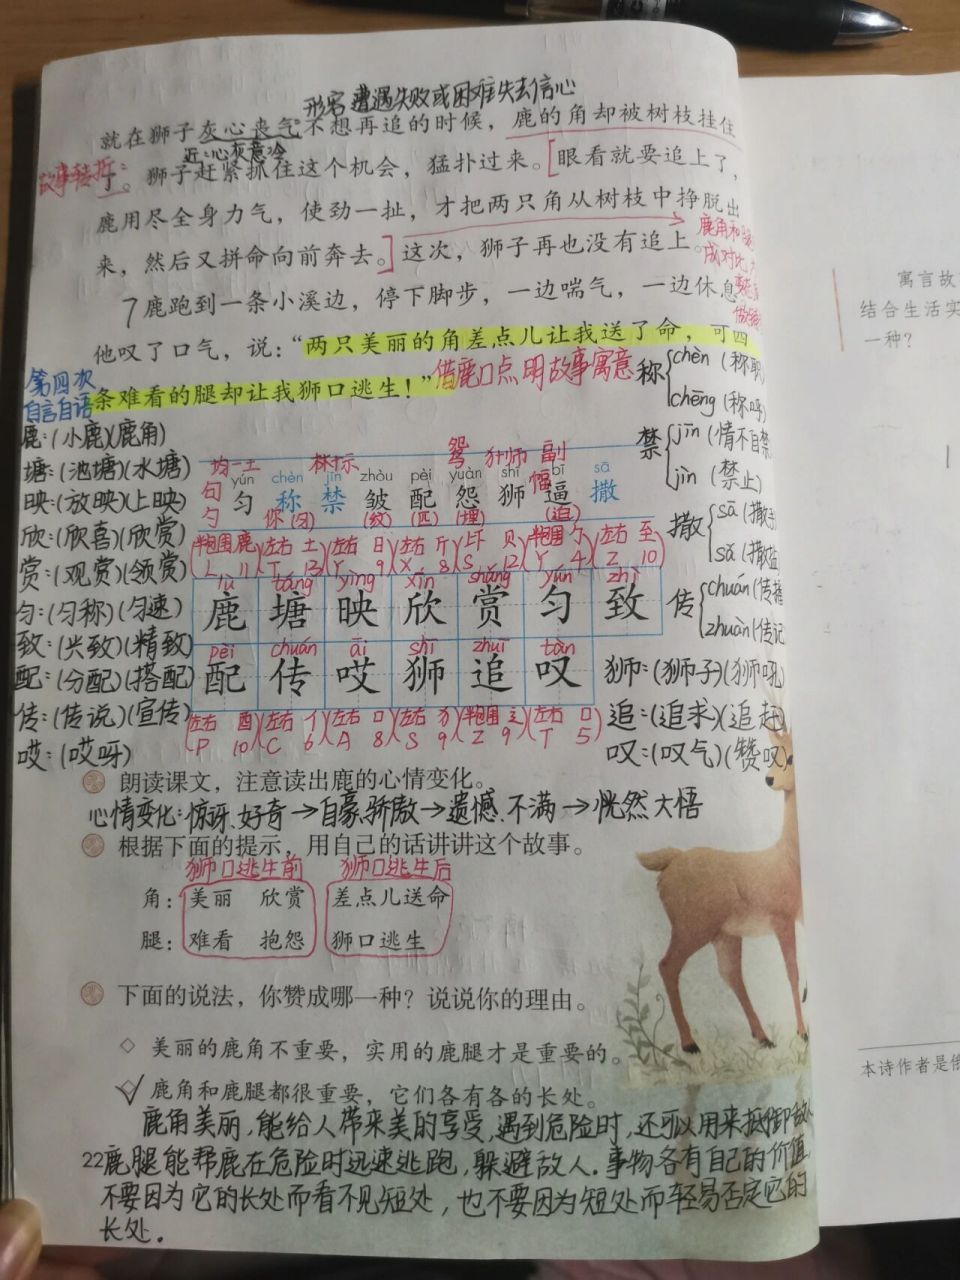 形容遭遇失败或困难失去信心
就在狮子灰心丧气不想再追的时候，鹿的角却被树枝挂住
近：心灰意冷
故事转折：
了。狮子赶紧抓住这个机会，猛扑过来。[眼看就要追上了，
鹿用尽全身力气，使劲一扯，才把两只角从树枝中挣脱出
来，然后又拼命向前奔去。]这次，狮子再也没有追上。
鹿角和
成对比，
7鹿跑到一条小溪边，停下脚步，一边喘气，一边休息
他叹了口气，说：“两只美丽的角差点儿让我送了命，可四
条难看的腿却让我狮口逃生！”
借鹿口点明故事寓意
第四次
自言自语
称 chèn（称职
chēng（称呼）
禁 jīn（情不自禁
jìn（禁止）
撒 sā（撒
sǎ（撒盐
传 chuán（传播
zhuàn（传记
鹿：（小鹿）（鹿角）
塘：（池塘）（水塘）
映：（放映）（上映）
欣：（欣喜）（欣赏）
赏：（观赏）（领赏）
匀：（匀称）（匀速）
致：（兴致）（精致）
配：（分配）（搭配）
传：（传说）（宣传）
哎：（哎呀）
均－土 林＋示 鸳 犭＋师 副
句 幅
勺 你（匀） （纹）（匹）（埋） （追）
yún chèn jīn zhòu pèi yuàn shī bī sā
匀 称 禁 皱 配 怨 狮 逼 撒
半包围 鹿 左右 土 左右 日 左右 斤 上下 贝 半包围 勹 左右 至
L 11 T 13 Y 9 X 8 S 12 Y 4 Z 10
lù táng yìng xīn shǎng yún zhì
鹿 塘 映 欣 赏 匀 致
pèi chuán āi shī zhuī tàn
配 传 哎 狮 追 叹
左右 酉 左右 亻 左右 口 左右 犭 半包围 辶 左右 口
P 10 C 6 A 8 S 9 Z 9 T 5
狮：（狮子）（狮吼）
追：（追求）（追赶）
叹：（叹气）（赞叹）
朗读课文，注意读出鹿的心情变化。
心情变化：惊讶、好奇→自豪、骄傲→遗憾、不满→恍然大悟
根据下面的提示，用自己的话讲讲这个故事。
狮口逃生前 狮口逃生后
角：美丽 欣赏 差点儿送命
腿：难看 抱怨 狮口逃生
下面的说法，你赞成哪一种？说说你的理由。
◇ 美丽的鹿角不重要，实用的鹿腿才是重要的。
◇ 鹿角和鹿腿都很重要，它们各有各的长处。
鹿角美丽，能给人带来美的享受，遇到危险时，还可以用来抵御敌人
22
鹿腿能帮鹿在危险时迅速逃跑，躲避敌人．事物各有自己的价值
不要因为它的长处而看不见短处，也不要因为短处而轻易否定它的
长处．
寓言故
结合生活实
一种？
本诗作者是俄